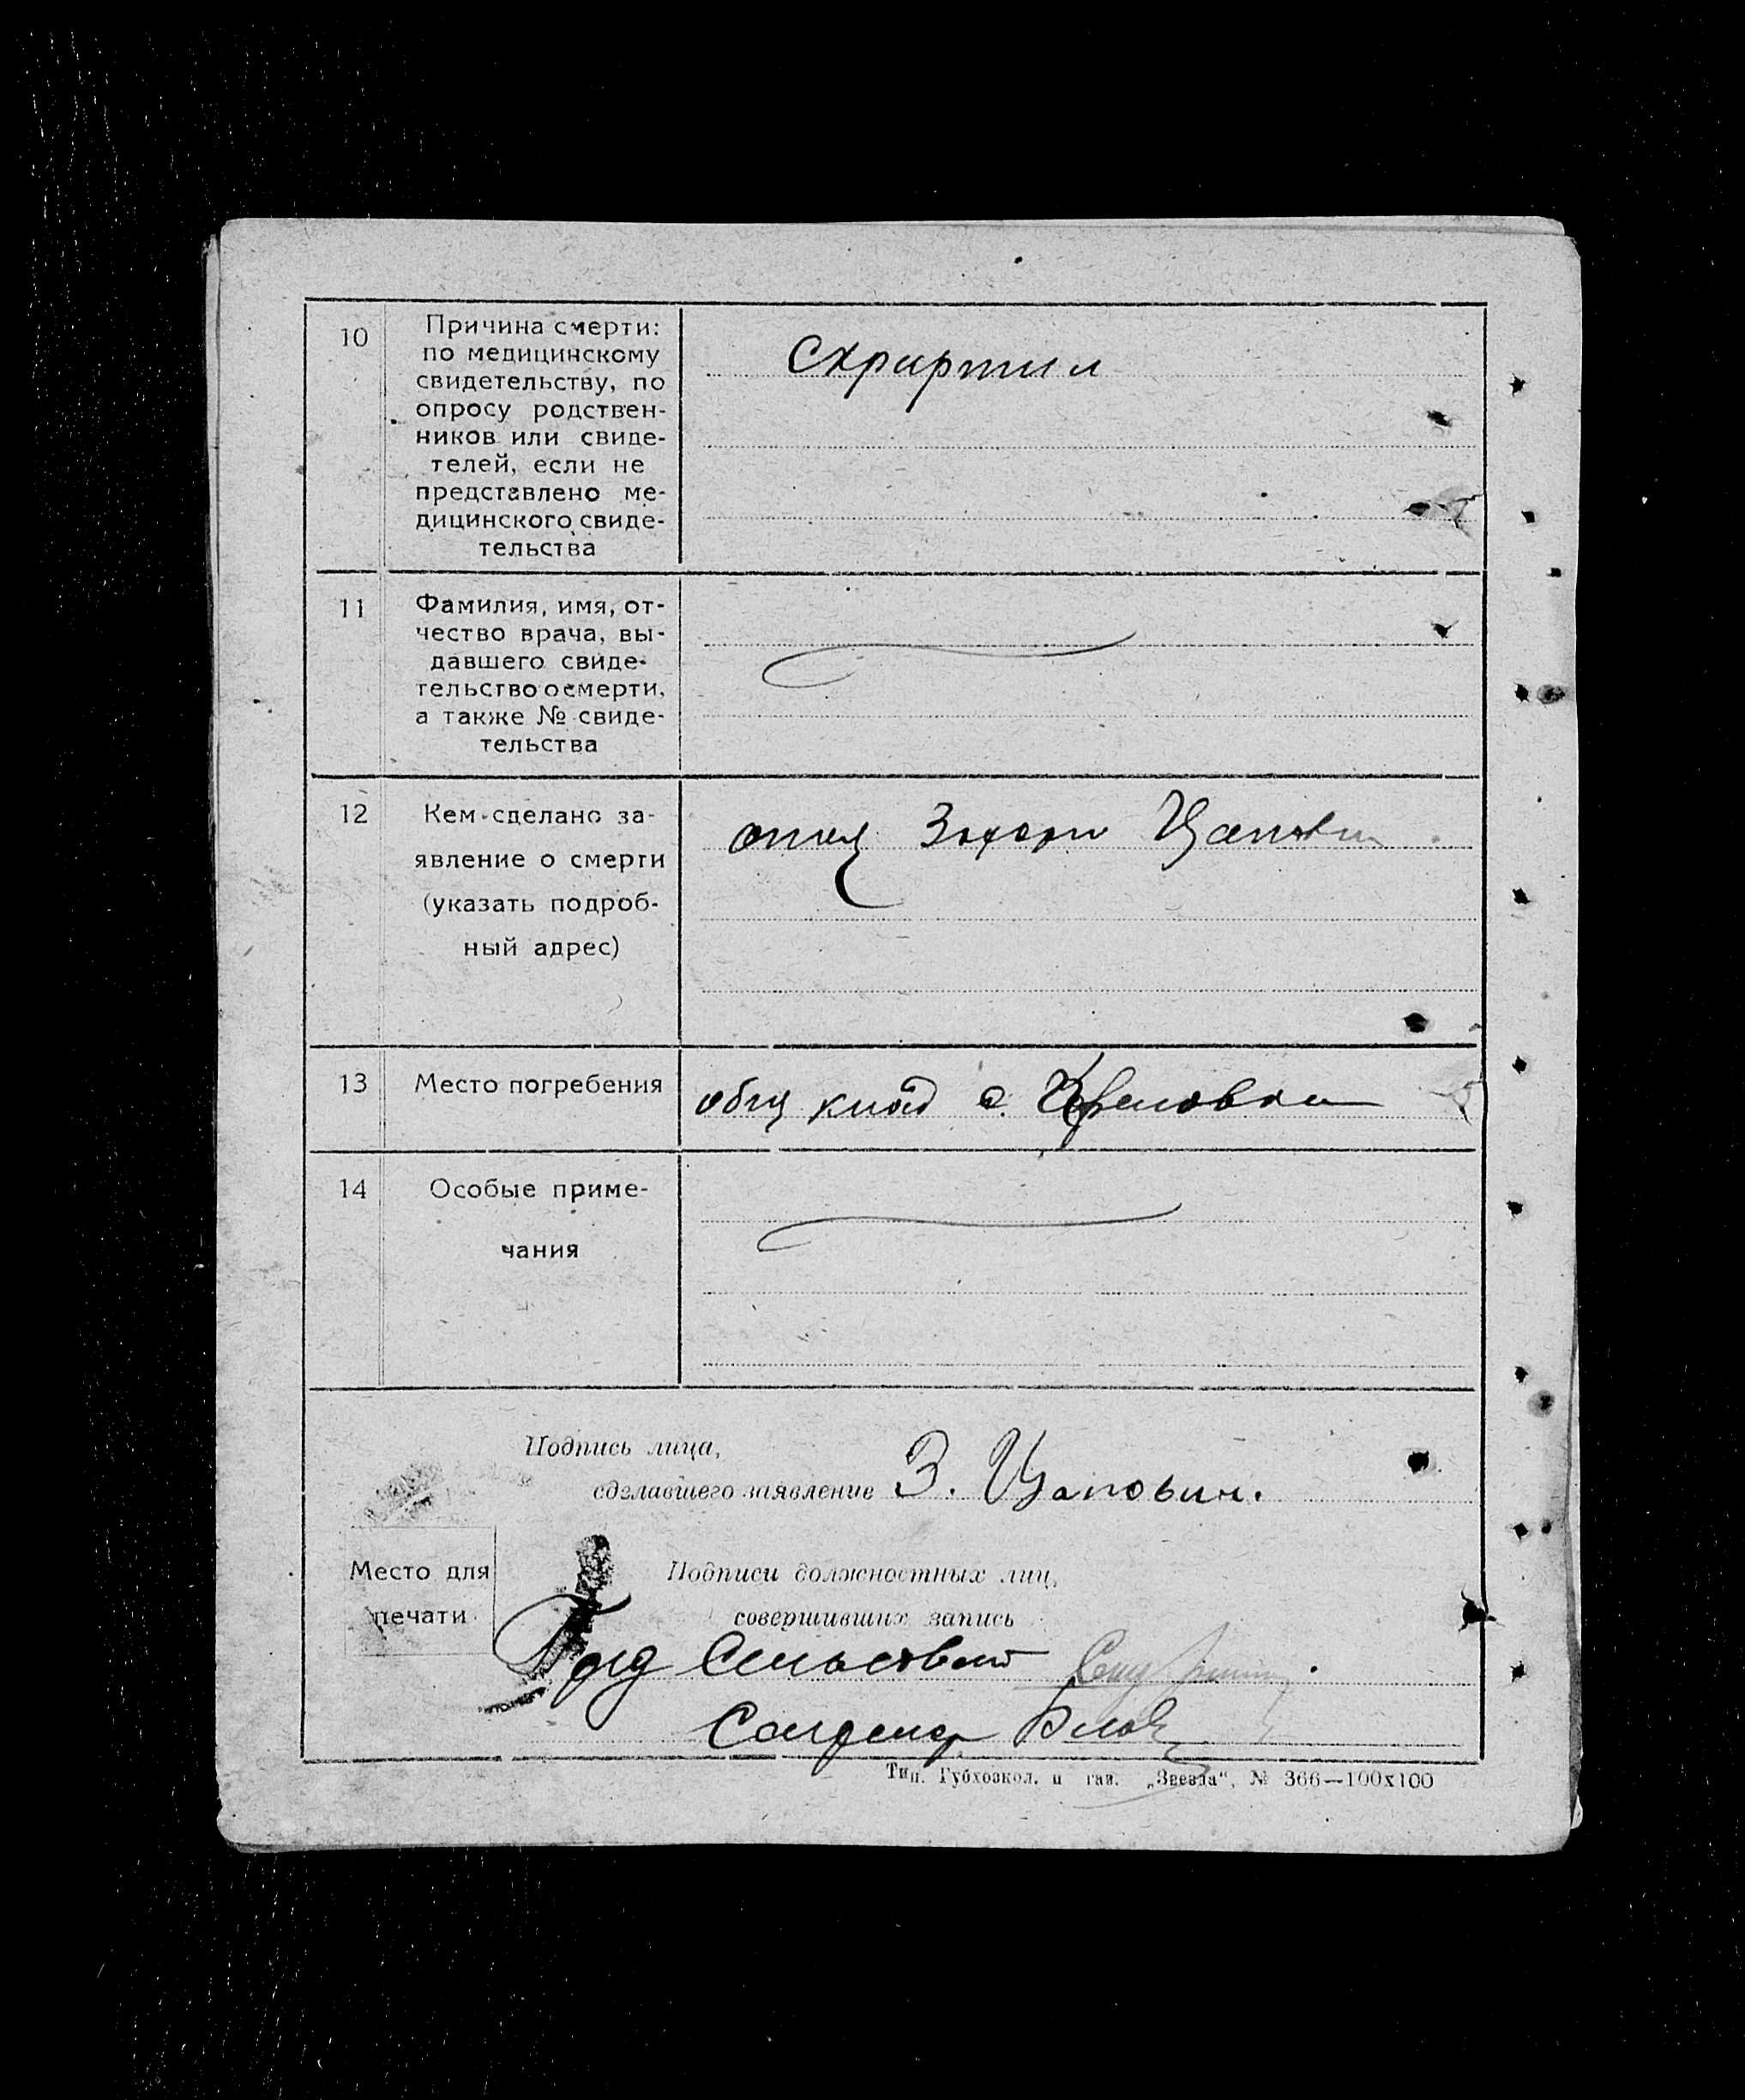 10
Причина смерти:
по медицинскому
свидетельству, по
опросу родствен-
ников или свиде-
телей, если не
представлено ме-
дицинского свиде-
тельства
11
Фамилия, имя, от-
чество врача, вы-
давшего свиде-
тельство о смерти,
а также № свиде-
тельства
12
Кем сделано за-
явление о смерти
(указать подроб-
ный адрес)
отец
13
Место погребения
общ с.
14
Особые приме-
чания
Подпись лица,
сделавшего заявление З. Цапович.
Место для
печати
Подписи должностных лиц,
совершивших запись
Сельсовет
Тип. Губхозкол. и газ. „Звезда“, № 366—100х100